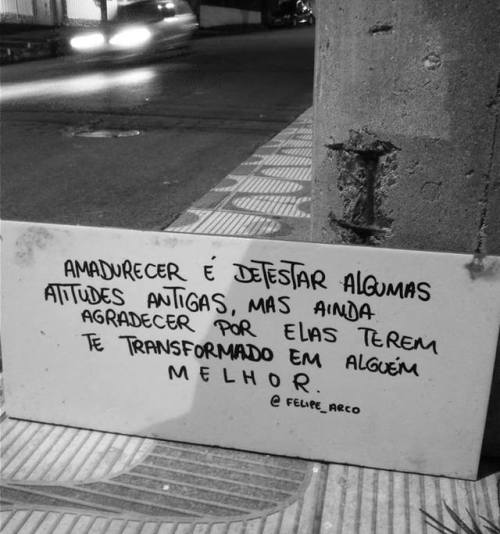 AMADURECER É DETESTAR ALGUMAS
ATITUDES ANTIGAS, MAS AINDA
AGRADECER POR ELAS TEREM
TE TRANSFORMADO EM ALGUÉM
MELHOR.
@FELIPE_ARCO